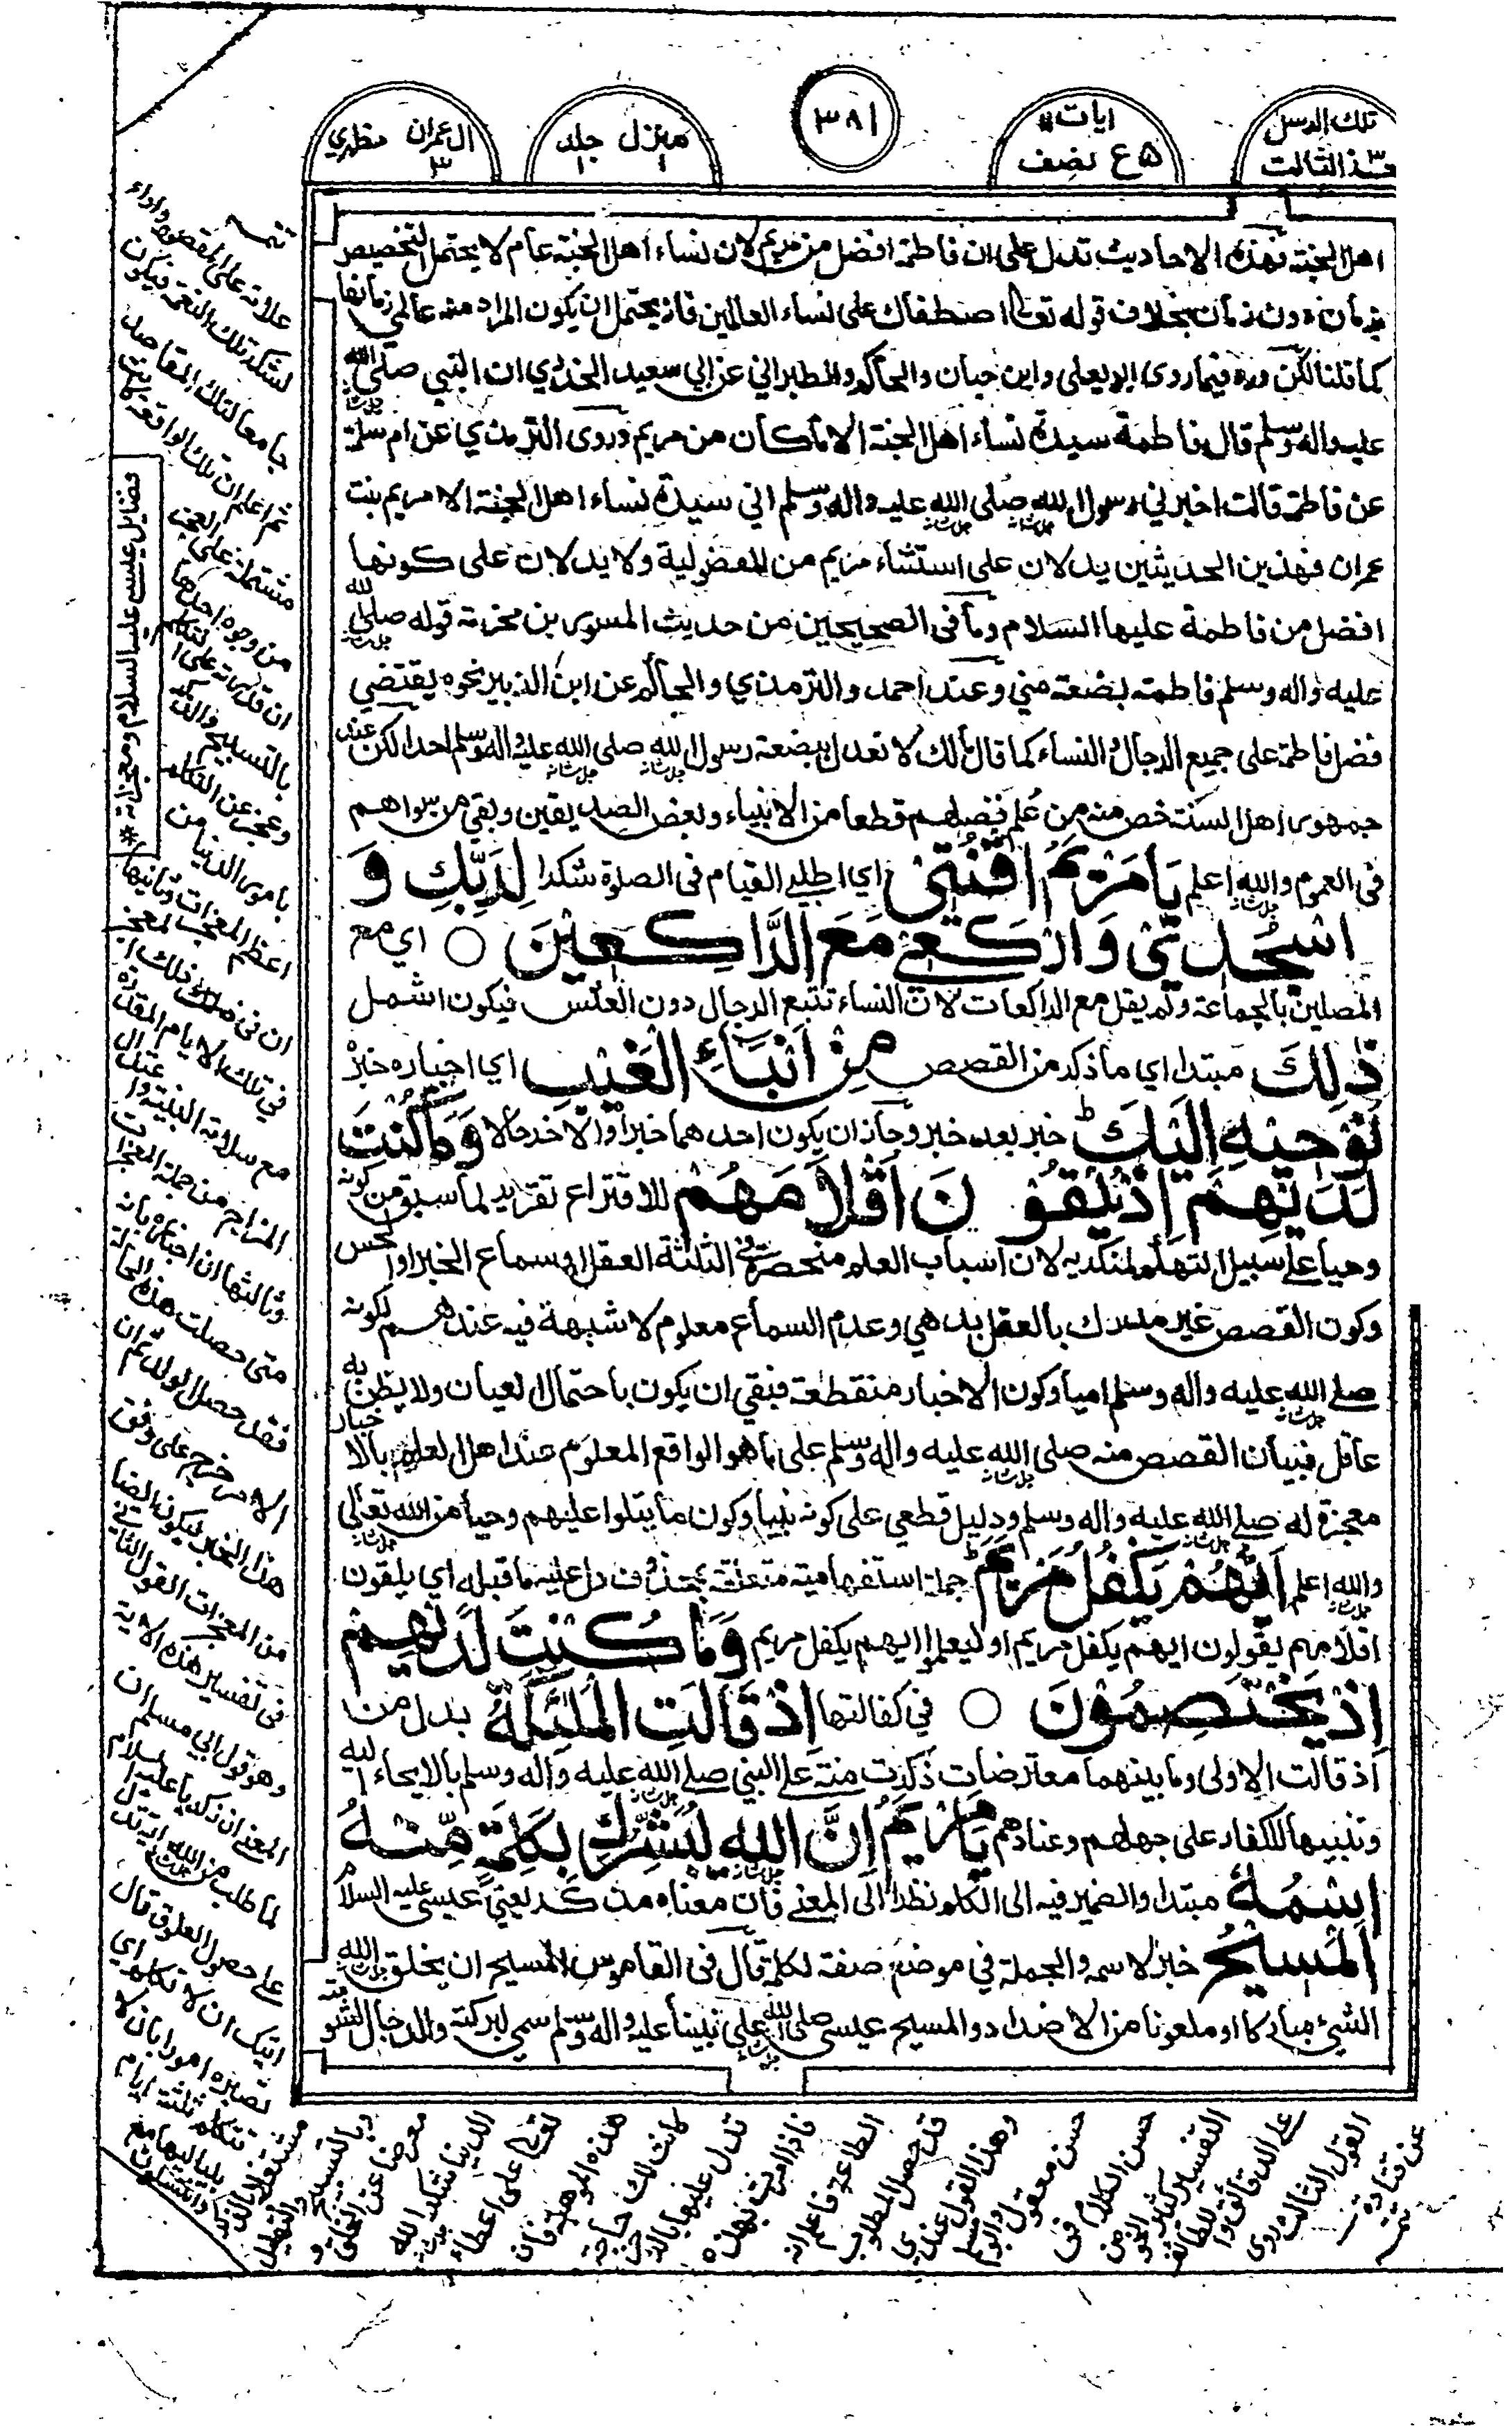 تلك الرسل
الثالث
ايات
۵ع نصف
٣٨١
منزل جلد
١ ١
ال عمران مظهري
٣
اهل الجنة فهذه الاحاديث تدل على ان فاطمة افضل من مريم لان نساء اهل الجنة عام لا يحتمل التخصيص
بزمان دون زمان بخلاف قوله تعالى اصطفاك على نساء العالمين فانه يحتمل ان يكون المراد منه عالمي زمانها
كما قلنا لكن ورد فيما روى ابو يعلى وابن حبان والحاكم والطبراني عن ابي سعيد الخدري ان النبي صلى الله
عليه واله وسلم قال فاطمة سيدة نساء اهل الجنة الا ما كان من مريم وروى الترمذي عن ام سلمة
عن فاطمة قالت اخبرني رسول الله صلى الله عليه واله وسلم اني سيدة نساء اهل الجنة الا مريم بنت
عمران فهذين الحديثين يدلان على استثناء مريم من المفضولية ولا يدلان على كونها
افضل من فاطمة عليها السلام وما في الصحيحين من حديث المسور بن مخرمة قوله صلى الله
عليه واله وسلم فاطمة بضعة مني وعند احمد والترمذي والحاكم عن ابن الزبير نحوه يقتضي
فضل فاطمة على جميع الرجال والنساء كما قال مالك لا نعدل ببضعة رسول الله صلى الله عليه واله وسلم احدا لكن عند
جمهور اهل السنة خص منه من علم فضلهم قطعا من الانبياء وبعض الصديقين وبقي من سواهم
في العموم والله اعلم يَا مَرْيَمُ اقْنُتِيْ اي اطيلي القيام في الصلوة شكرا لِرَبِّكِ وَ
اسْجُدِيْ وَارْكَعِيْ مَعَ الرَّاكِعِيْنَ ○ اي مع
المصلين بالجماعة ولم يقل مع الراكعات لان النساء تتبع الرجال دون العكس فيكون اشمل
ذٰلِكَ مبتدا اي ما ذكر من القصص مِنْ اَنْبَاءِ الْغَيْبِ اي اخباره خبر
نُوْحِيْهِ اِلَيْكَ ط خبر بعد خبر وجاز ان يكون احدهما خبرا والاخر حالا وَمَا كُنْتَ
لَدَيْهِمْ اِذْ يُلْقُوْنَ اَقْلَامَهُمْ للاقتراع تقرير لما سبق من كونه
وحيا على سبيل التهكم لمنكريه لان اسباب العلم منحصرة في الثلثة العقل او سماع الخبر او الحس
وكون القصص غير مدرك بالعقل بديهي وعدم السماع معلوم لا شبهة فيه عندهم لكونه
صلى الله عليه واله وسلم اميا وكون الاخبار منقطعة فبقي ان يكون باحتمال العيان ولا يظن به
عاقل فبيان القصص منه صلى الله عليه واله وسلم على ما هو الواقع المعلوم عند اهل العلم بالاخبار
معجزة له صلى الله عليه واله وسلم ودليل قطعي على كونه نبيا وكون ما يتلوا عليهم وحيا من الله تعالى
والله اعلم اَيُّهُمْ يَكْفُلُ مَرْيَمَ جملة استفهامية متعلقة بمحذوف دل عليه ما قبله اي يلقون
اقلامهم يقولون ايهم يكفل مريم او ليعلموا ايهم يكفل مريم وَمَا كُنْتَ لَدَيْهِمْ
اِذْ يَخْتَصِمُوْنَ ○ في كفالتها اِذْ قَالَتِ الْمَلٰئِكَةُ بدل من
اذ قالت الاولى وما بينهما معترضات ذكرت منة على النبي صلى الله عليه واله وسلم بالايحاء اليه
وتنبيها للكفار على جهلهم وعنادهم يَا مَرْيَمُ اِنَّ اللهَ يُبَشِّرُكِ بِكَلِمَةٍ مِّنْهُ
اسْمُهُ مبتدا والضمير فيه الى الكلمة نظرا الى المعنى فان معناه مذكر يعني عيسى عليه السلام
الْمَسِيْحُ خبر لاسمه والجملة في موضع صفة لكلمة قال في القاموس المسيح ان يخلق الله
الشيء مباركا او ملعونا من الاضداد والمسيح عيسى صلى الله على نبينا عليه واله وسلم سمي لبركته والدجال لشومه
فضايل عيسى عليه السلام ومعجزاته *
تتمه
علامة على المقصود واداء
لشكر تلك النعمة فيكون
جامعا لتلك المقاصد
ثم اعلم ان تلك الواقعة كانت
مشتملة على المعجز
من وجوه احدها
ان قدرته على التكلم
بالتسبيح والذكر
وعجزه عن التكلم
بامور الدنيا من
اعظم المعجزات وثانيها
ان في ذلك المعجز
في تلك الايام المقدرة
مع سلامة البنية واعتدال
المزاج من جملة المعجزات
وثالثها ان اخباره بانه
متى حصلت هذه الحالة
فقد حصل الولد ثم ان
الامر خرج على وفق
هذا الخبر ليكون ايضا
من المعجزات القول الثاني
في تفسير هذه الاية
وهو قول ابي مسلم ان
المعنى ان زكريا عليه السلام
لما طلب من الله اية تدل
على حصول العلوق قال
ايتك ان لا تكلم اي
تصير مامورا بان لا
تتكلم ثلثة ايام
بلياليها مع
مشتغلا بالذكر
وبالتسبيح والتهليل
معرضا عن الخلق و
الدنيا شكرا لله
تعالى على اعطاء
هذه الموهبة فان
كانت لك حاجة
تدل عليها بالرمز
فاذا امرت بهذه
الطاعة فاعلم انه
قد حصل المطلوب
وهذا القول عندي
حسن معقول وابو مسلم
حسن الكلام في
التفسير كثير الغوص
على الدقائق واللطائف
القول الثالث روى
عن قتادة